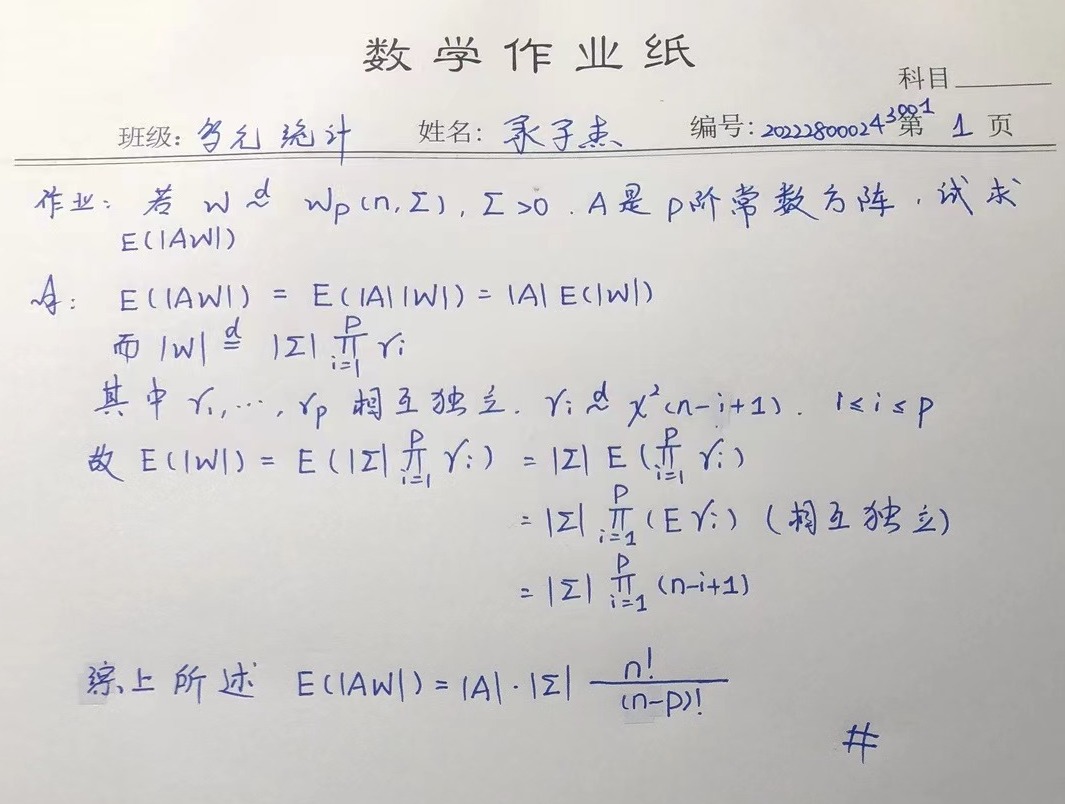 数学作业纸
科目
班级: 多元统计 姓名: 承子杰 编号: 202228000243001 第 1 页
作业: 若 W ~ᵈ Wp(n,Σ), Σ>0. A是p阶常数方阵, 试求
E(|AW|)
E(|AW|) = E(|A||W|) = |A|E(|W|)
而 |W| =ᵈ |Σ| ∏_{i=1}^{p} γi
其中 γ1,…,γp 相互独立. γi ~ᵈ χ²(n-i+1). 1≤i≤p
故 E(|W|) = E(|Σ| ∏_{i=1}^{p} γi) = |Σ| E(∏_{i=1}^{p} γi)
= |Σ| ∏_{i=1}^{p} (Eγi) (相互独立)
= |Σ| ∏_{i=1}^{p} (n-i+1)
综上所述 E(|AW|) = |A|·|Σ| n!/(n-p)!
#